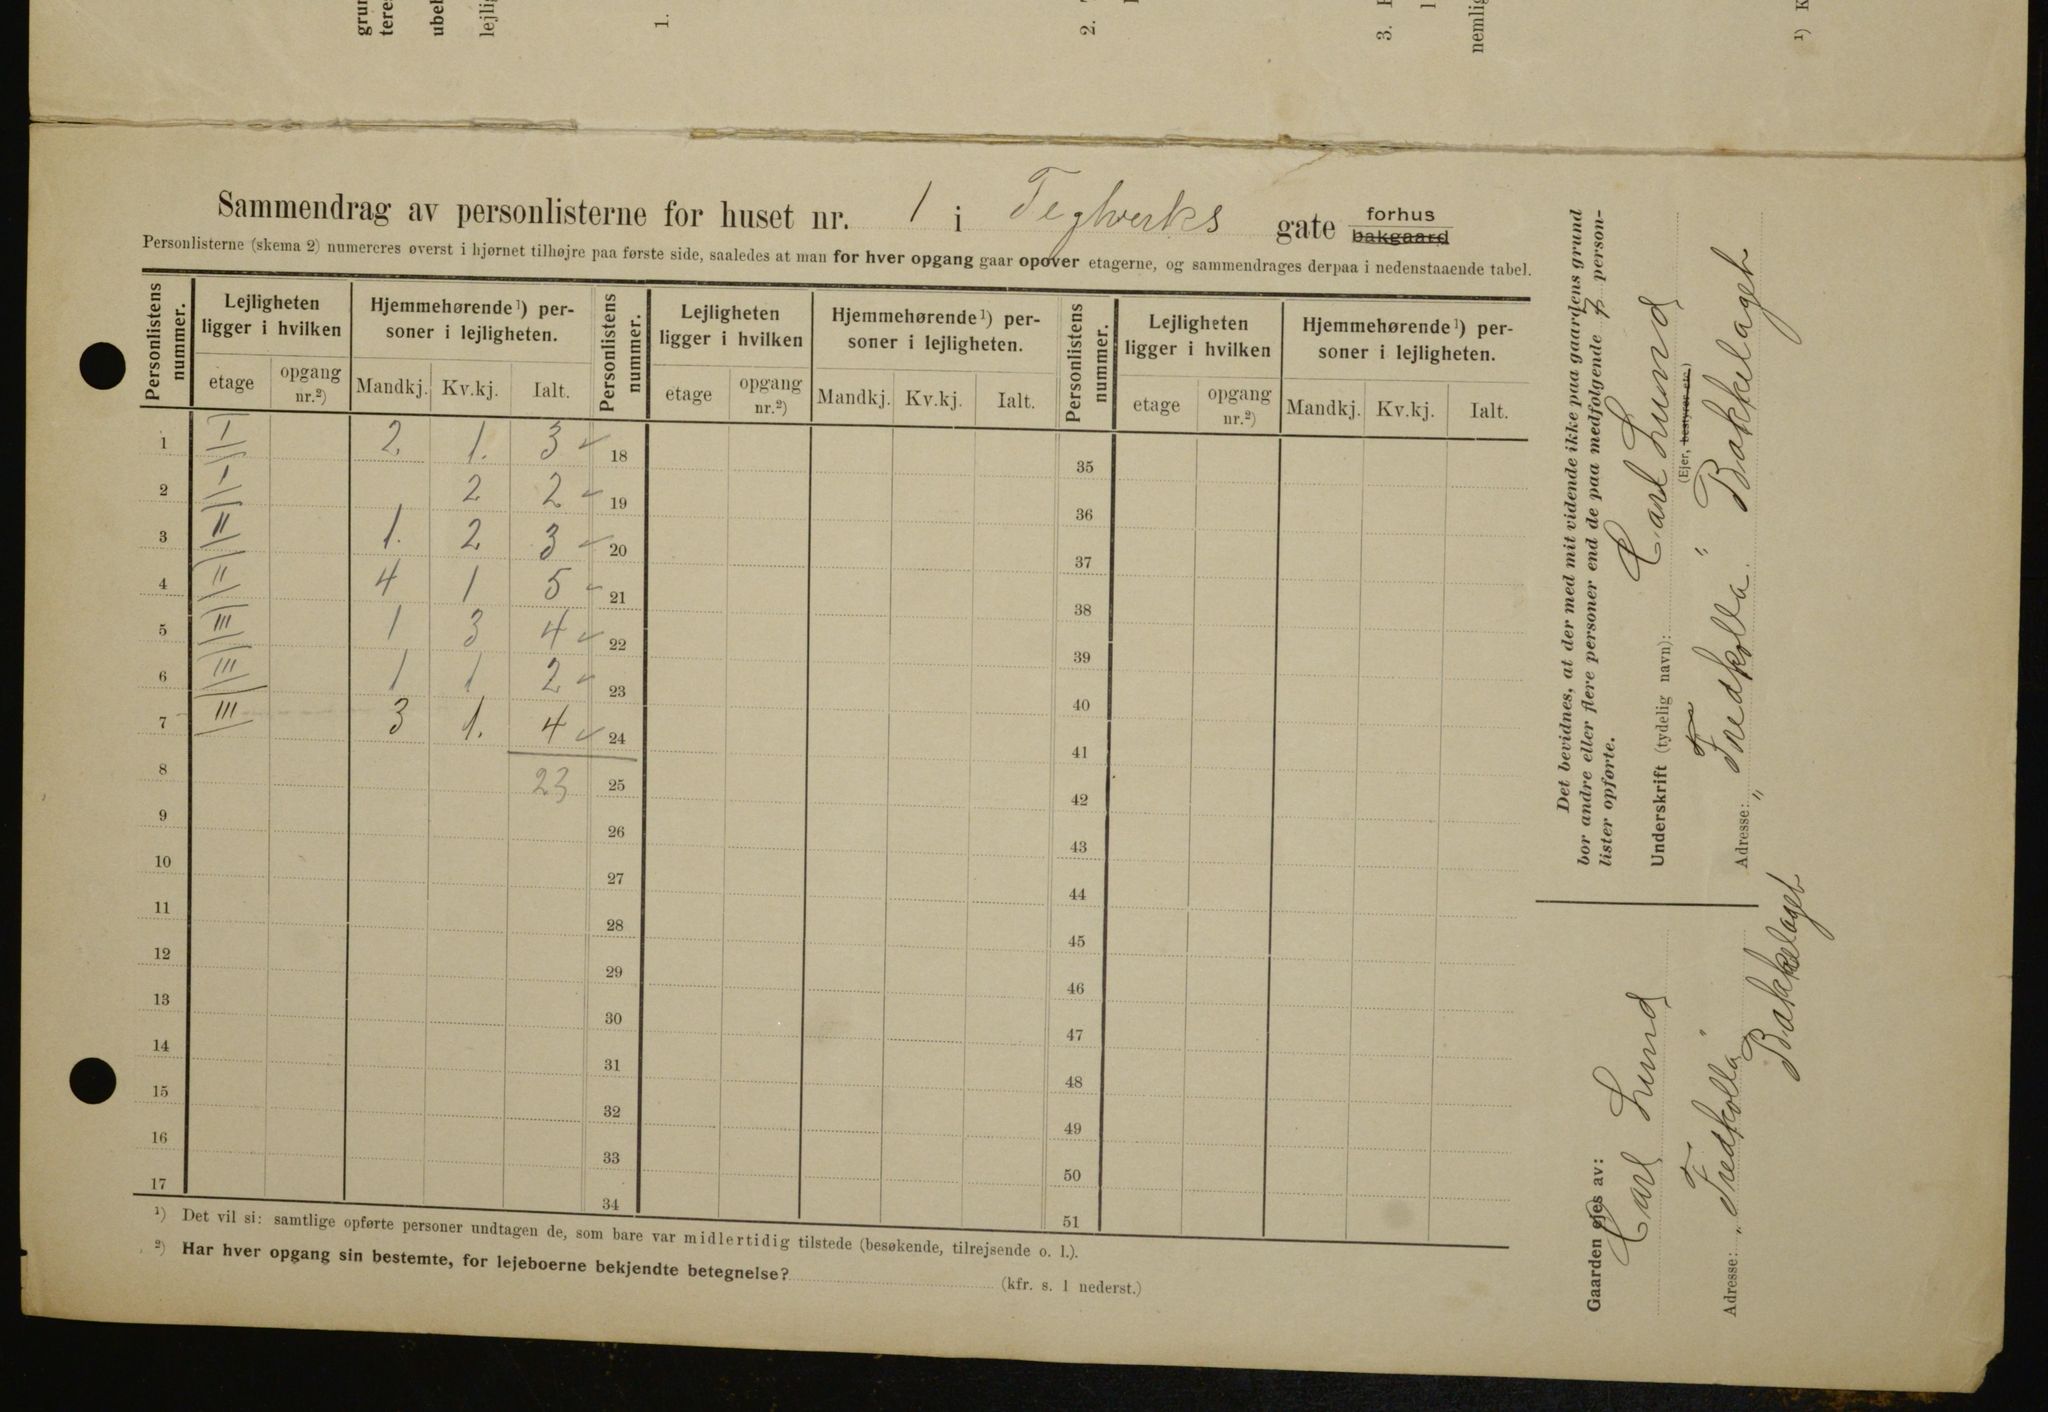 grun
teres
ubel
lejlig
1.
2.
3.
nemlig
¹) K
Sammendrag av personlisterne for huset nr. 1 i Teglverks gate forhus bakgaard
Personlisterne (skema 2) numereres øverst i hjørnet tilhøjre paa første side, saaledes at man for hver opgang gaar opover etagerne, og sammendrages derpaa i nedenstaaende tabel.
Personlistens nummer. Lejligheten ligger i hvilken Hjemmehørende ¹) personer i lejligheten. Personlistens nummer. Lejligheten ligger i hvilken Hjemmehørende ¹) personer i lejligheten. Personlistens nummer. Lejligheten ligger i hvilken Hjemmehørende ¹) personer i lejligheten.
etage opgang nr.²) Mandkj. Kv.kj. Ialt. etage opgang nr.²) Mandkj. Kv.kj. Ialt. etage opgang nr.²) Mandkj. Kv.kj. Ialt.
1 I 2. 1. 3 ✓ 18 35
2 I 2 2 ✓ 19 36
3 II 1. 2 3 ✓ 20 37
4 II 4 1 5 ✓ 21 38
5 III 1 3 4 ✓ 22 39
6 III 1 1 2 ✓ 23 40
7 III 3 1. 4 ✓ 24 41
8 23 25 42
9 26 43
10 27 44
11 28 45
12 29 46
13 30 47
14 31 48
15 32 49
16 33 50
17 34 51
¹) Det vil si: samtlige opførte personer undtagen de, som bare var midlertidig tilstede (besøkende, tilrejsende o. l.).
²) Har hver opgang sin bestemte, for lejeboerne bekjendte betegnelse? (kfr. s. 1 nederst.)
Det bevidnes, at der med mit vidende ikke paa gaardens grund
bor andre eller flere personer end de paa medfølgende 7 person-
lister opførte.
Underskrift (tydelig navn): Carl Lund
(Ejer, bestyrer etc.)
Adresse: „Fredkolla" Bakkelaget
Gaarden ejes av:
Carl Lund
Adresse: „Fredkolla"
Bakkelaget